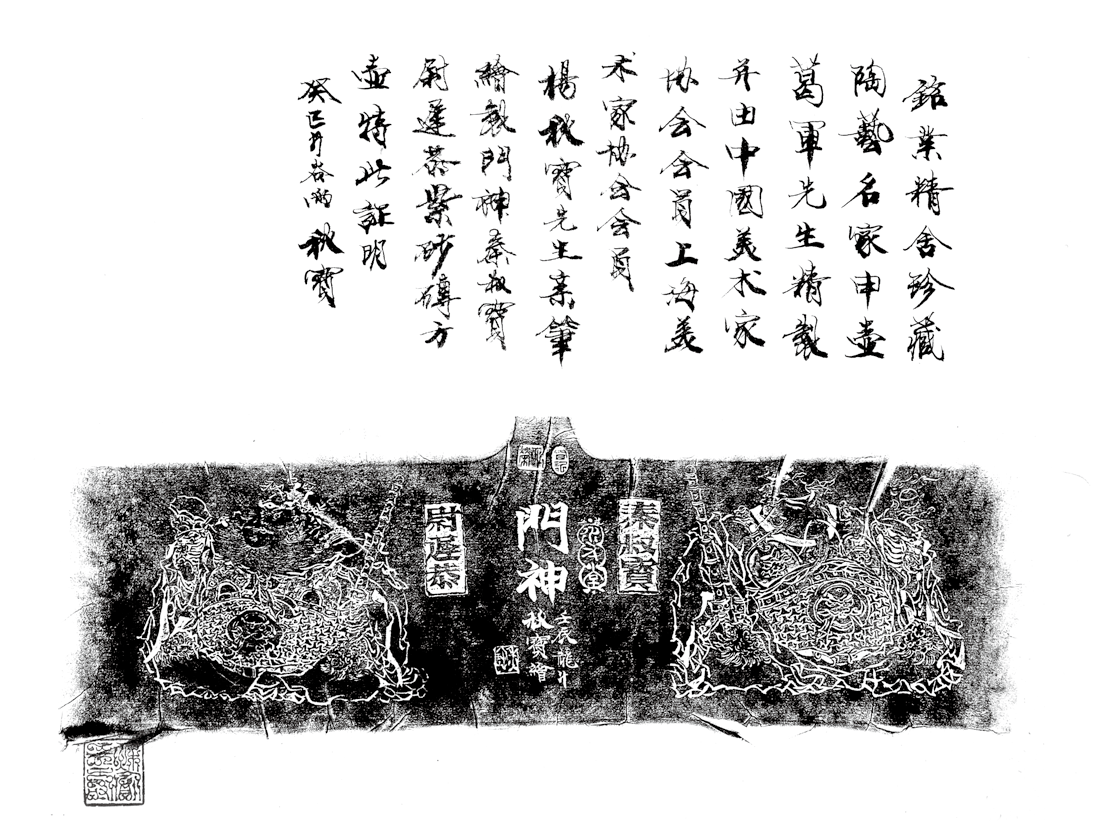 銘業精舍珍藏
陶藝名家申壺
葛軍先生精製
并由中國美术家
协会会員上海美
术家协会会員
楊秋寶先生亲筆
繪製門神秦叔寶
尉遲恭紫砂磚方
壺特此証明
癸巳
秋寶
秦叔寶
門神
秋寶繪
尉遲恭